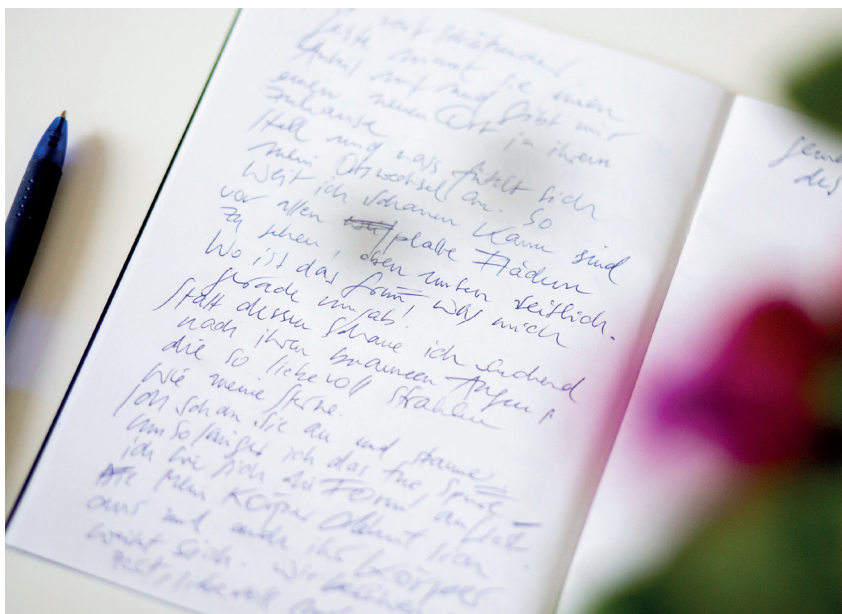 Geste nimmt sie meinen
Arm und gibt mir
einen neuen Ort in ihrem
Zuhause.
Hell und nass fühlt sich
mein Ortswechsel an. So
weit ich schauen kann sind
vor allem platte Flächen
zu sehen, oben unten seitlich.
Wo ist das Grün, was mich
gerade umgab.
Statt dessen schaue ich suchend
nach ihren braunen Augen,
die so liebevoll strahlen
wie meine Sterne.
Ich schau sie an und staune,
um so länger ich das tue, spüre
ich wie sich die Form auflöst.
Mein Körper dehnt sich
aus und auch ihr Körper
weitet sich. Wir
des